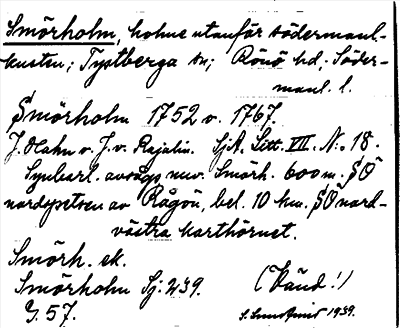 Smörholm, holme utanför södermanl.-
kusten; Tystberga sn; Rönö hd; Söder-
manl. l.
Smörholm 1752 v. 1767.
J. Hahn v. J. v. Rajalin. SjA. Litt. VII. N:o 18.
Synbarl. avsågs nuv. Smörh. 600 m. SO
nordspetsen av Rågön, bel. 10 km. SO nord-
västra karthörnet.
Smörh. ek.
Smörholm Sj: 239. (Vänd!)
G. 57. 1939.